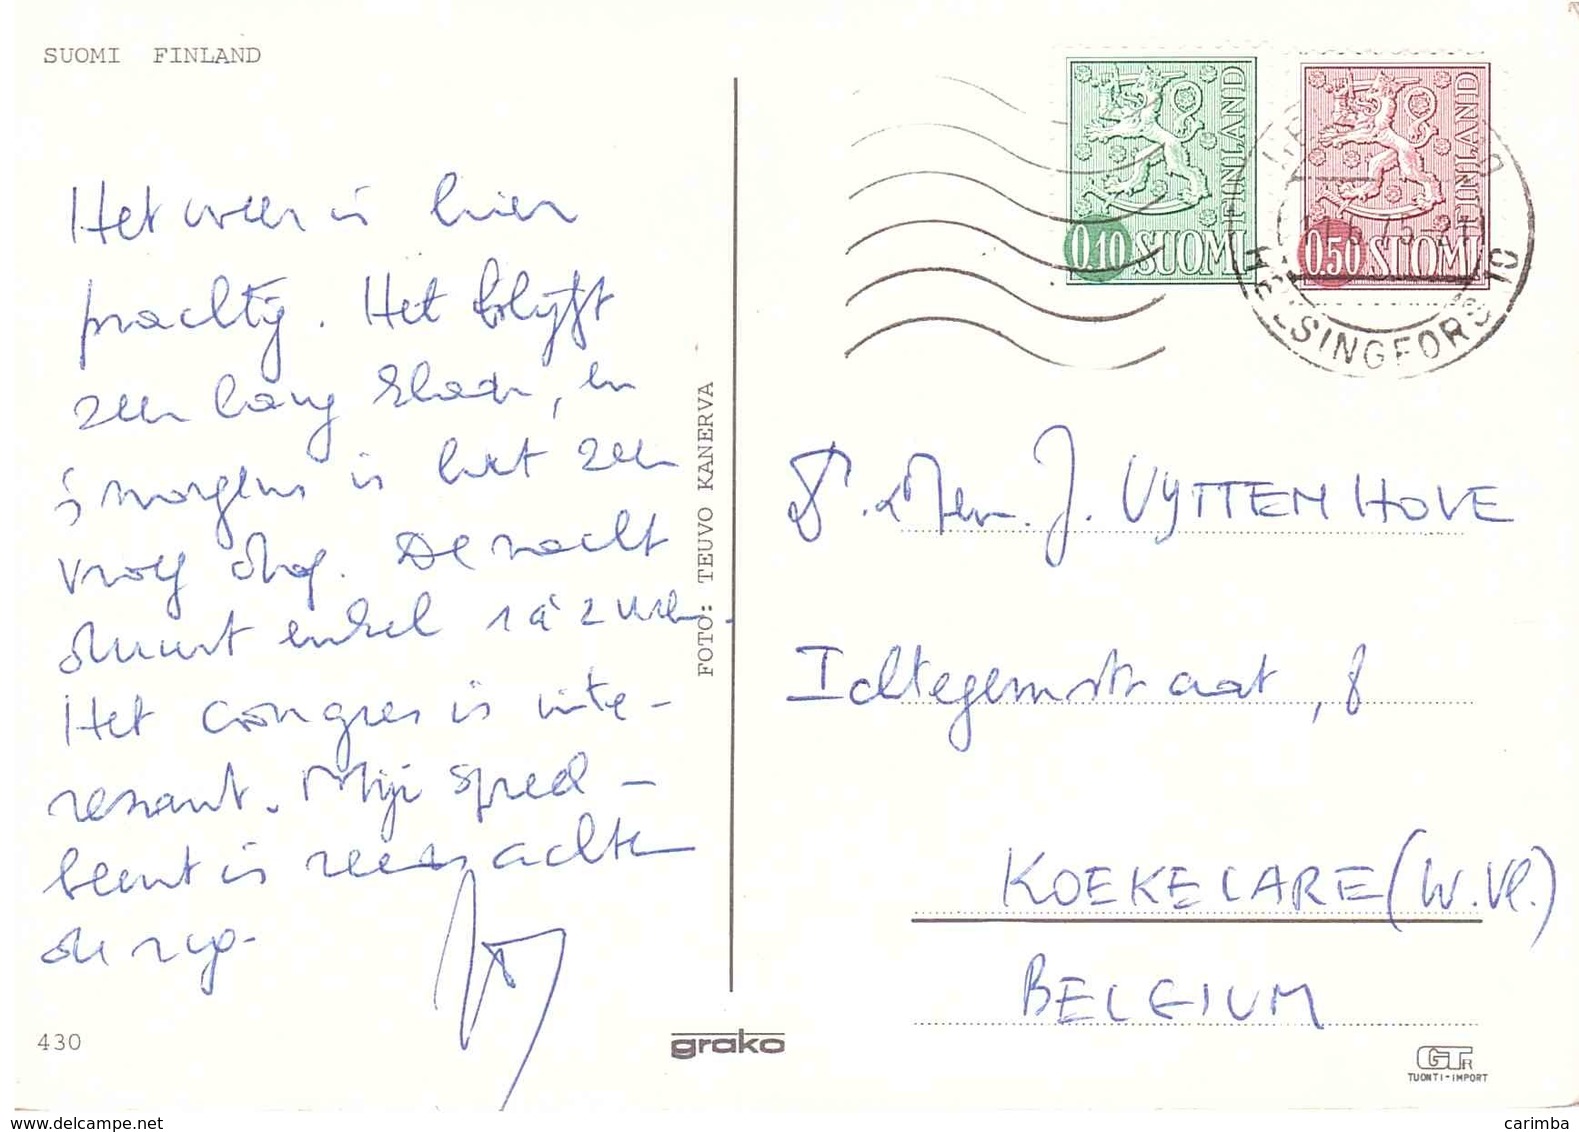 SUOMI FINLAND
Het weer is hier
prachtig. Het blijft
zeer lang klaar, en
's morgens is het zeer
vroeg dag. De nacht
duurt enkel 1 à 2 uren.
Het congres is inte-
ressant. Mijn speed-
beurt is reeds achter
de rug.
430
FOTO: TEUVO KANERVA
grako
FINLAND
0.10 SUOMI
FINLAND
0.50 SUOMI
HELSINGFORS 10
J. UYTTENHOVE
Ichtegemstraat, 8
KOEKELARE (W.Vl.)
BELGIUM
GTR
TUONTI-IMPORT
www.delcampe.net
carimba